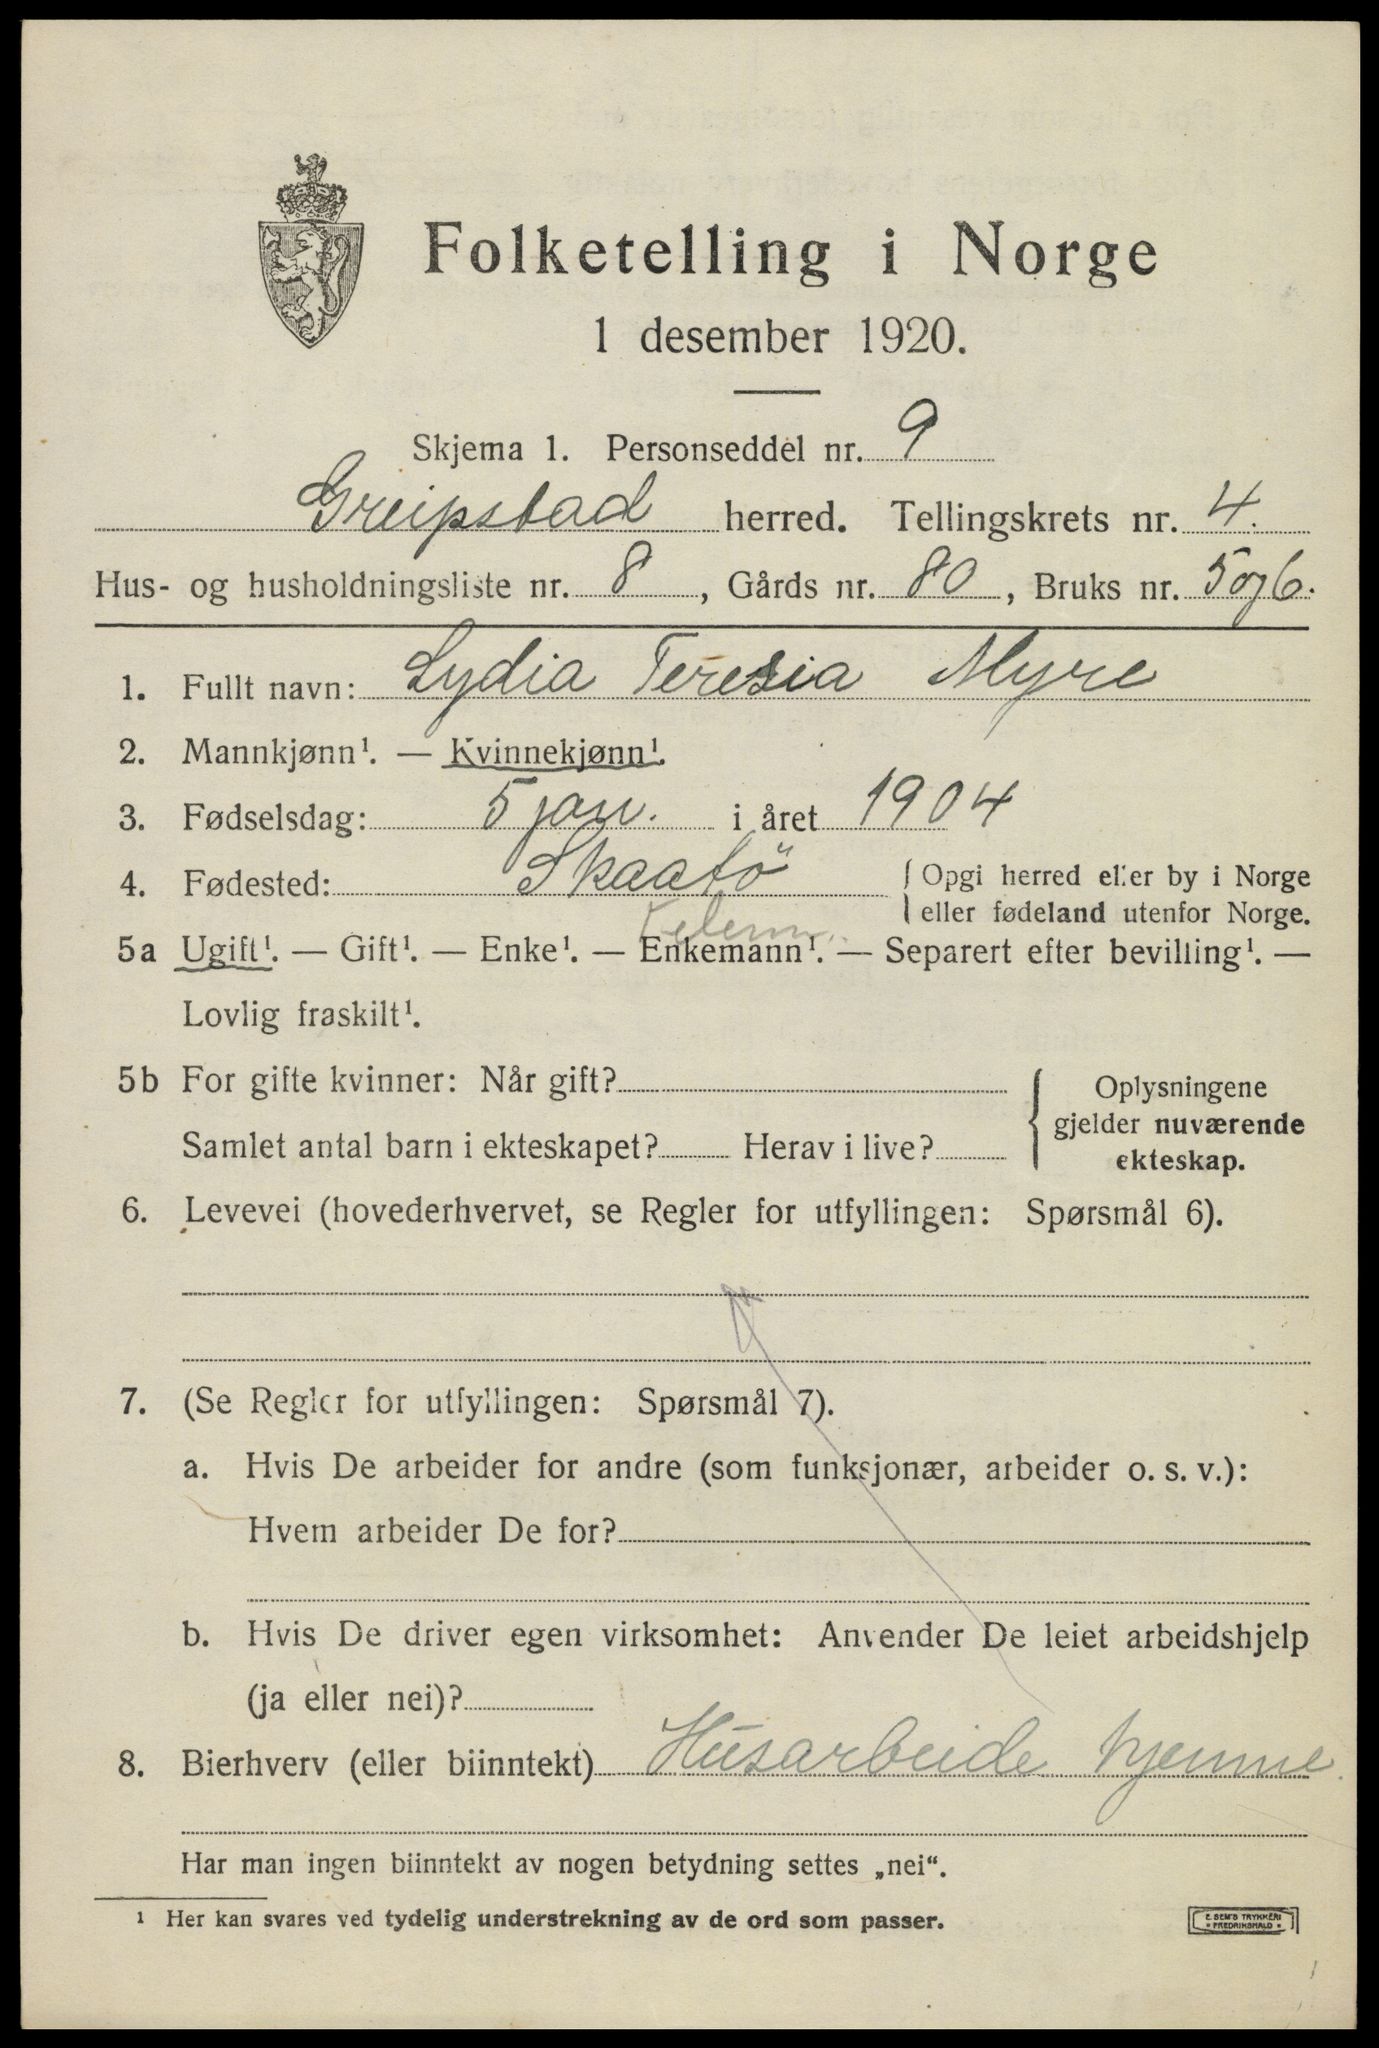 Folketelling i Norge
1 desember 1920.
Skjema 1. Personseddel nr. 9
Greipstad herred. Tellingskrets nr. 4.
Hus- og husholdningsliste nr. 8, Gårds nr. 80, Bruks nr. 5 og 6.
1. Fullt navn: Lydia Teresia Myre
2. Mannkjønn¹. — Kvinnekjønn¹.
3. Fødselsdag: 5 jan. i året 1904
4. Fødested: Skaatö { Opgi herred eller by i Norge
eller fødeland utenfor Norge.
5a Ugift¹. — Gift¹. — Enke¹. — Enkemann¹. — Separert efter bevilling¹. —
Lovlig fraskilt¹.
5b For gifte kvinner: Når gift? { Oplysningene
gjelder nuværende
Samlet antal barn i ekteskapet? Herav i live?
ekteskap.
6. Levevei (hovederhvervet, se Regler for utfyllingen: Spørsmål 6).
7. (Se Regler for utfyllingen: Spørsmål 7).
a. Hvis De arbeider for andre (som funksjonær, arbeider o. s. v.):
Hvem arbeider De for?
b. Hvis De driver egen virksomhet: Anvender De leiet arbeidshjelp
(ja eller nei)?
8. Bierhverv (eller biinntekt) Husarbeide hjemme.
Har man ingen biinntekt av nogen betydning settes „nei“.
¹ Her kan svares ved tydelig understrekning av de ord som passer.
E. SEM'S TRYKKERI
• FREDRIKSHALD •